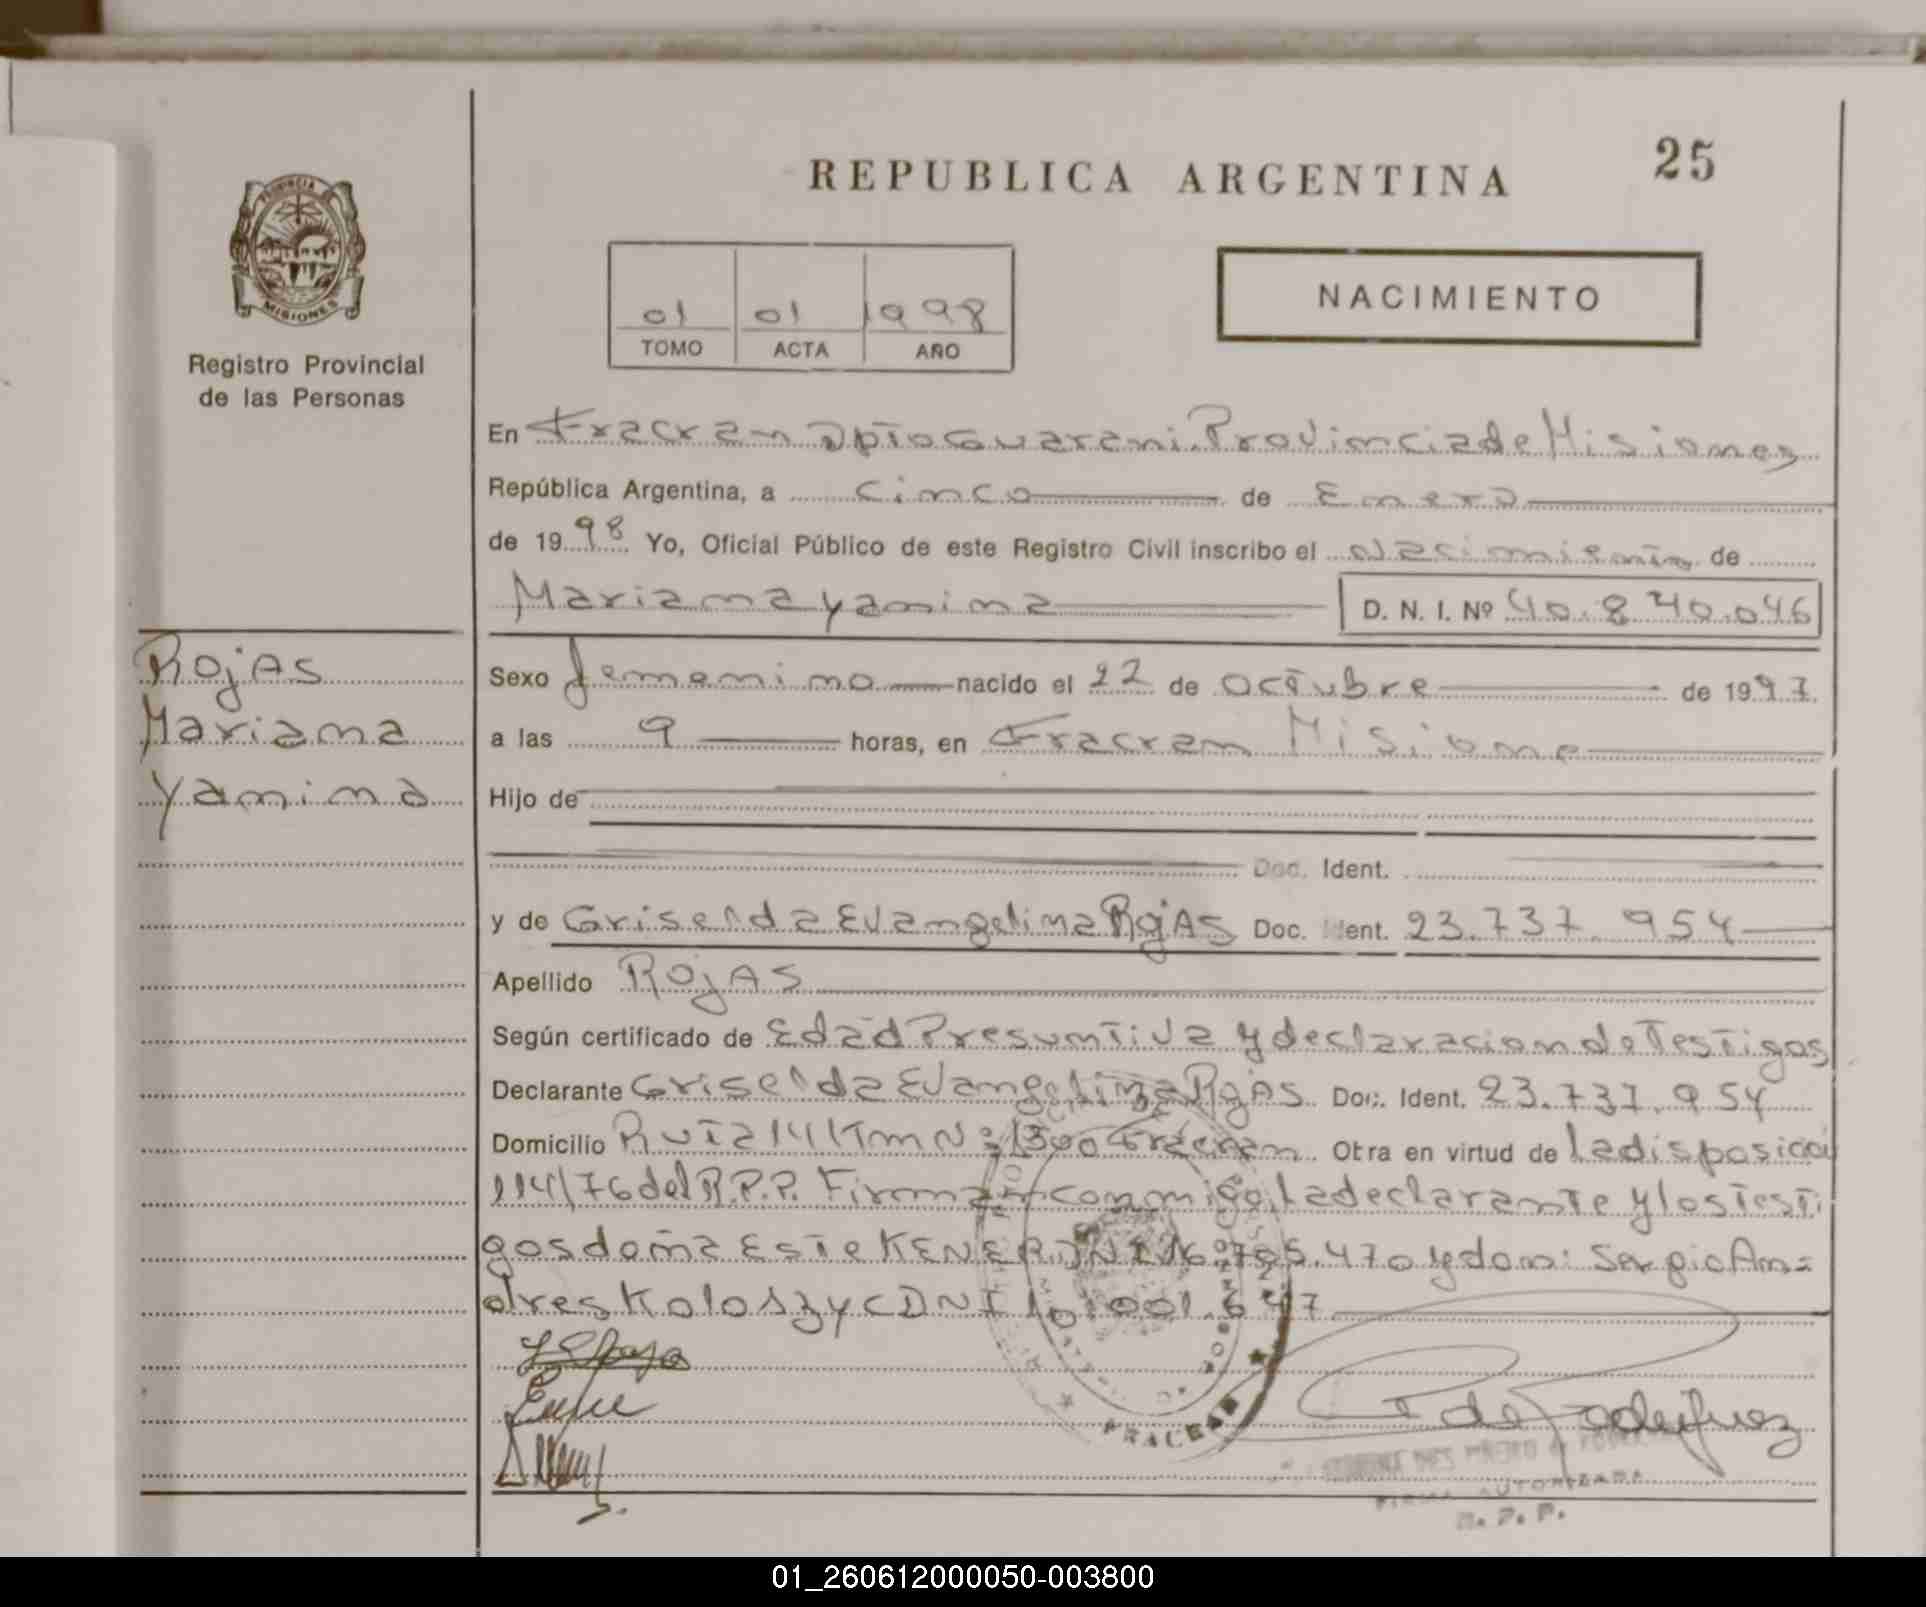 REPUBLICA ARGENTINA
25
PROVINCIA DE
MISIONES
Registro Provincial
de las Personas
01 01 1998
TOMO ACTA AÑO
NACIMIENTO
En Fracran Dpto Guarani. Provincia de Misiones
República Argentina, a cinco de Enero
de 1998 Yo, Oficial Público de este Registro Civil inscribo el Nacimiento de
Mariana Yanina D. N. I. Nº 40.840.046
Rojas
Mariana
Yanina
Sexo femenino nacido el 22 de octubre de 1997.
a las 9 horas, en Fracran Misione
Hijo de
Doc. Ident.
y de Griselda Evangelina Rojas Doc. Ident. 23.737.954
Apellido Rojas
Según certificado de Edad Presuntiva y declaracion de Testigos
Declarante Griselda Evangelina Rojas Doc. Ident. 23.737.954
Domicilio Ruta 14 Km Nº 1300 Fracran Otra en virtud de la disposicion
114/76 del R.P.P. Firman conmigo, la declarante y los testi
gos doña Este KENER DNI 16.795.470 y don: Sergio An=
dres Koloszyc DNI 10.001.647
FRACRAN
FIRMA AUTORIZADA
R. P. P.
01_260612000050-003800